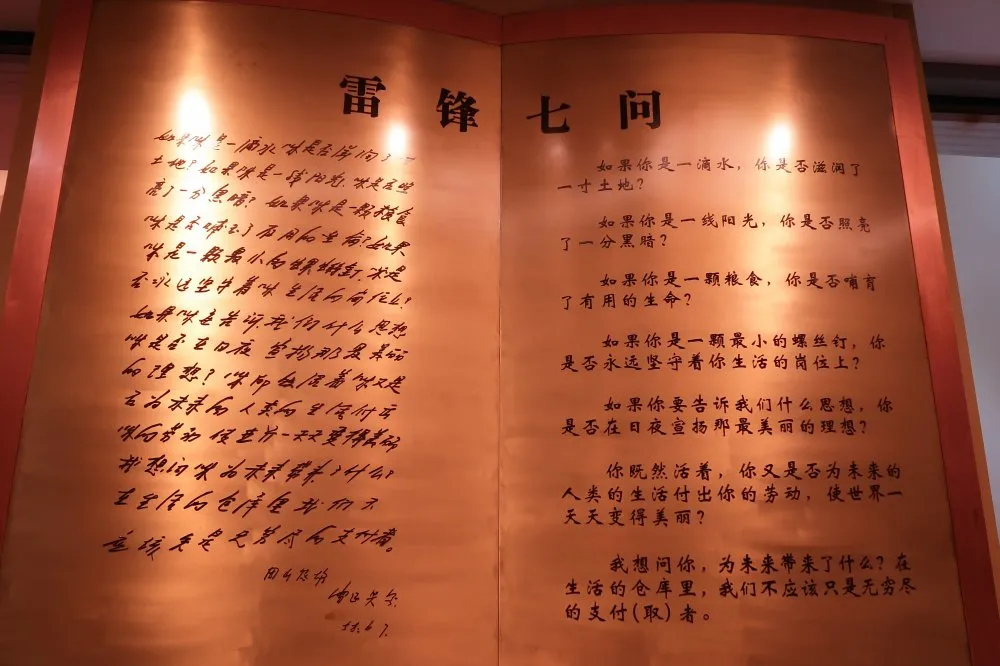 雷锋七问
如果你是一滴水 你是否滋润了一寸
土地?如果你是一线阳光,你是否照
亮了一分黑暗?如果你是一颗粮食
你是否哺育了有用的生命?如果
你是一颗最小的螺丝钉,你是
否永远坚守着你生活的岗位上?
如果你要告诉我们什么思想
你是否在日夜宣扬那最美丽
的理想?你既然活着你又是
否为未来的人类的生活付出
你的劳动 使世界一天天变得美丽
我想问你为未来带来了什么?
在生活的仓库里我们不
应该只是无穷尽的支付者。
如果你是一滴水,你是否滋润了
一寸土地?
如果你是一线阳光,你是否照亮
了一分黑暗?
如果你是一颗粮食,你是否哺育
了有用的生命?
如果你是一颗最小的螺丝钉,你
是否永远坚守着你生活的岗位上?
如果你要告诉我们什么思想,你
是否在日夜宣扬那最美丽的理想?
你既然活着,你又是否为未来的
人类的生活付出你的劳动,使世界一
天天变得美丽?
我想问你,为未来带来了什么?在
生活的仓库里,我们不应该只是无穷尽
的支付(取)者。